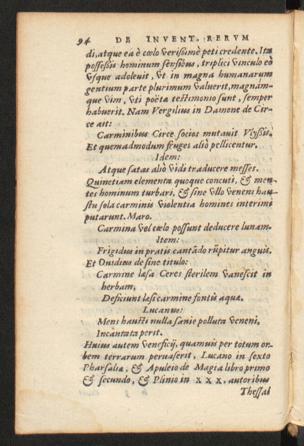 94 DE INVENT. RERVM
di, atque ea è cœlo verissimè peti credente. Ita
possessis hominum sensibus, triplici vinculo eò
vsque adoleuit, vt in magna humanarum
gentium parte plurimum valuerit, magnam-
que vim, vti poëtæ testimonio sunt, semper
habuerit. Nam Vergilius in Damone de Cir-
ce ait:
Carminibus Circe socios mutauit Vlyssis,
Et quemadmodum fruges aliò pellicentur.
Idem:
Atque satas aliò vidi traducere messes.
Quinetiam elementa quoque concuti, & men-
tes hominum turbari, & sine vllo veneni hau-
stu sola carminis violentia homines interimi
putarunt. Maro.
Carmina vel cœlo possunt deducere lunam.
Item:
Frigidus in pratis cantãdo rũpitur anguis.
Et Ouidius de sine titulo:
Carmine læsa Ceres sterilem vanescit in
herbam,
Deficiunt læsi carmine fontis aquæ.
Lucanus:
Mens hausti nulla sanie polluta veneni,
Incantata perit.
Huius autem veneficij, quamuis per totum or-
bem terrarum peruaserit, Lucano in sexto
Pharsaliæ, & Apuleio de Magia libro primo
& secundo, & Plinio in XXX, autoribus
Thessal